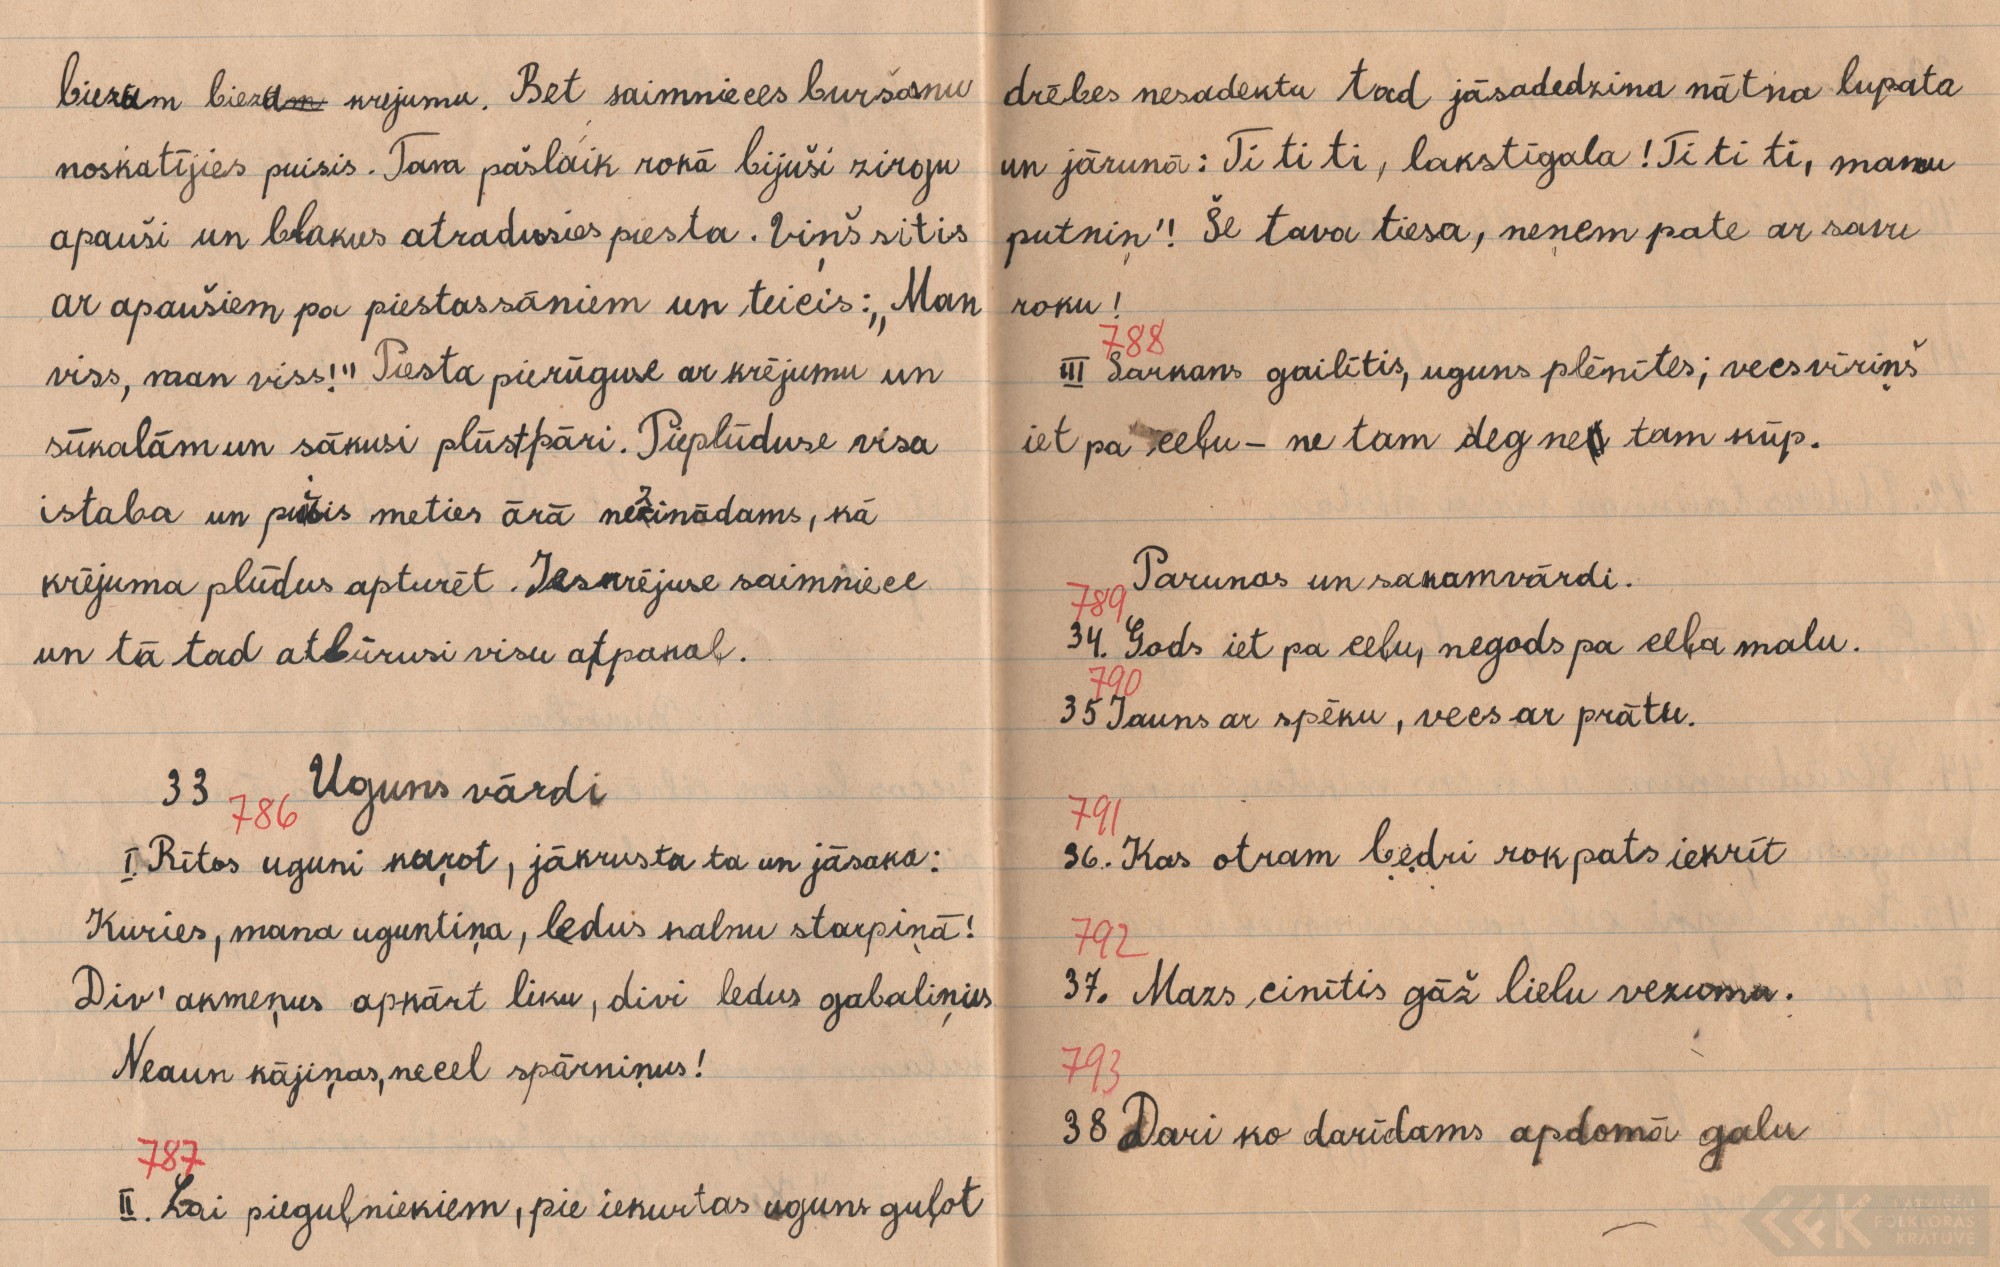 biezum biezam krejumu. Bet saimnieces buršanu
noskatījies puisis. Tam pašlaik rokā bijuši zirgu
apauši un blakus atradusies piesta. Viņš sitis
ar apaušiem pa piestassāniem un teicis: „Man
viss, man viss!" Piesta pierūguse ar krējumu un
sūkalām un sākusi plūst pāri. Pieplūduse visa
istaba un puisis meties ārā nezinādams, kā
krējuma plūdus apturēt. Ieskrējuse saimniece
un tā tad atbūrusi visu atpakaļ.
33 Uguns vārdi
786
I. Rītos uguni kuŗot, jākrusta ta un jāsaka:
Kuries, mana uguntiņa, ledus kalnu starpiņā!
Div' akmeņus apkārt liku, divi ledus gabaliņus
Neaun kājiņas, necel spārniņus!
787
II. Lai pieguļniekiem, pie iekurtas uguns guļot
drēbes nesadektu tad jāsadedzina nātna lupata
un jārunā: Ti ti ti, lakstīgala! Ti ti ti, manu
putniņ'! Še tava tiesa, neņem pate ar savu
roku!
788
III Sarkans gailītis, uguns plēnītes; vecs vīriņš
iet pa ceļu – ne tam deg ne tam kūp.
Parunas un sakamvārdi.
789
34. Gods iet pa ceļu, negods pa ceļa malu.
790
35 Jauns ar spēku, vecs ar prātu.
791
36. Kas otram bedri rok pats iekrīt
792
37. Mazs cinītis gāž lielu vezumu.
793
38 Dari ko darīdams apdomā galu
LATVIEŠU
FOLKLORAS
KRĀTUVE